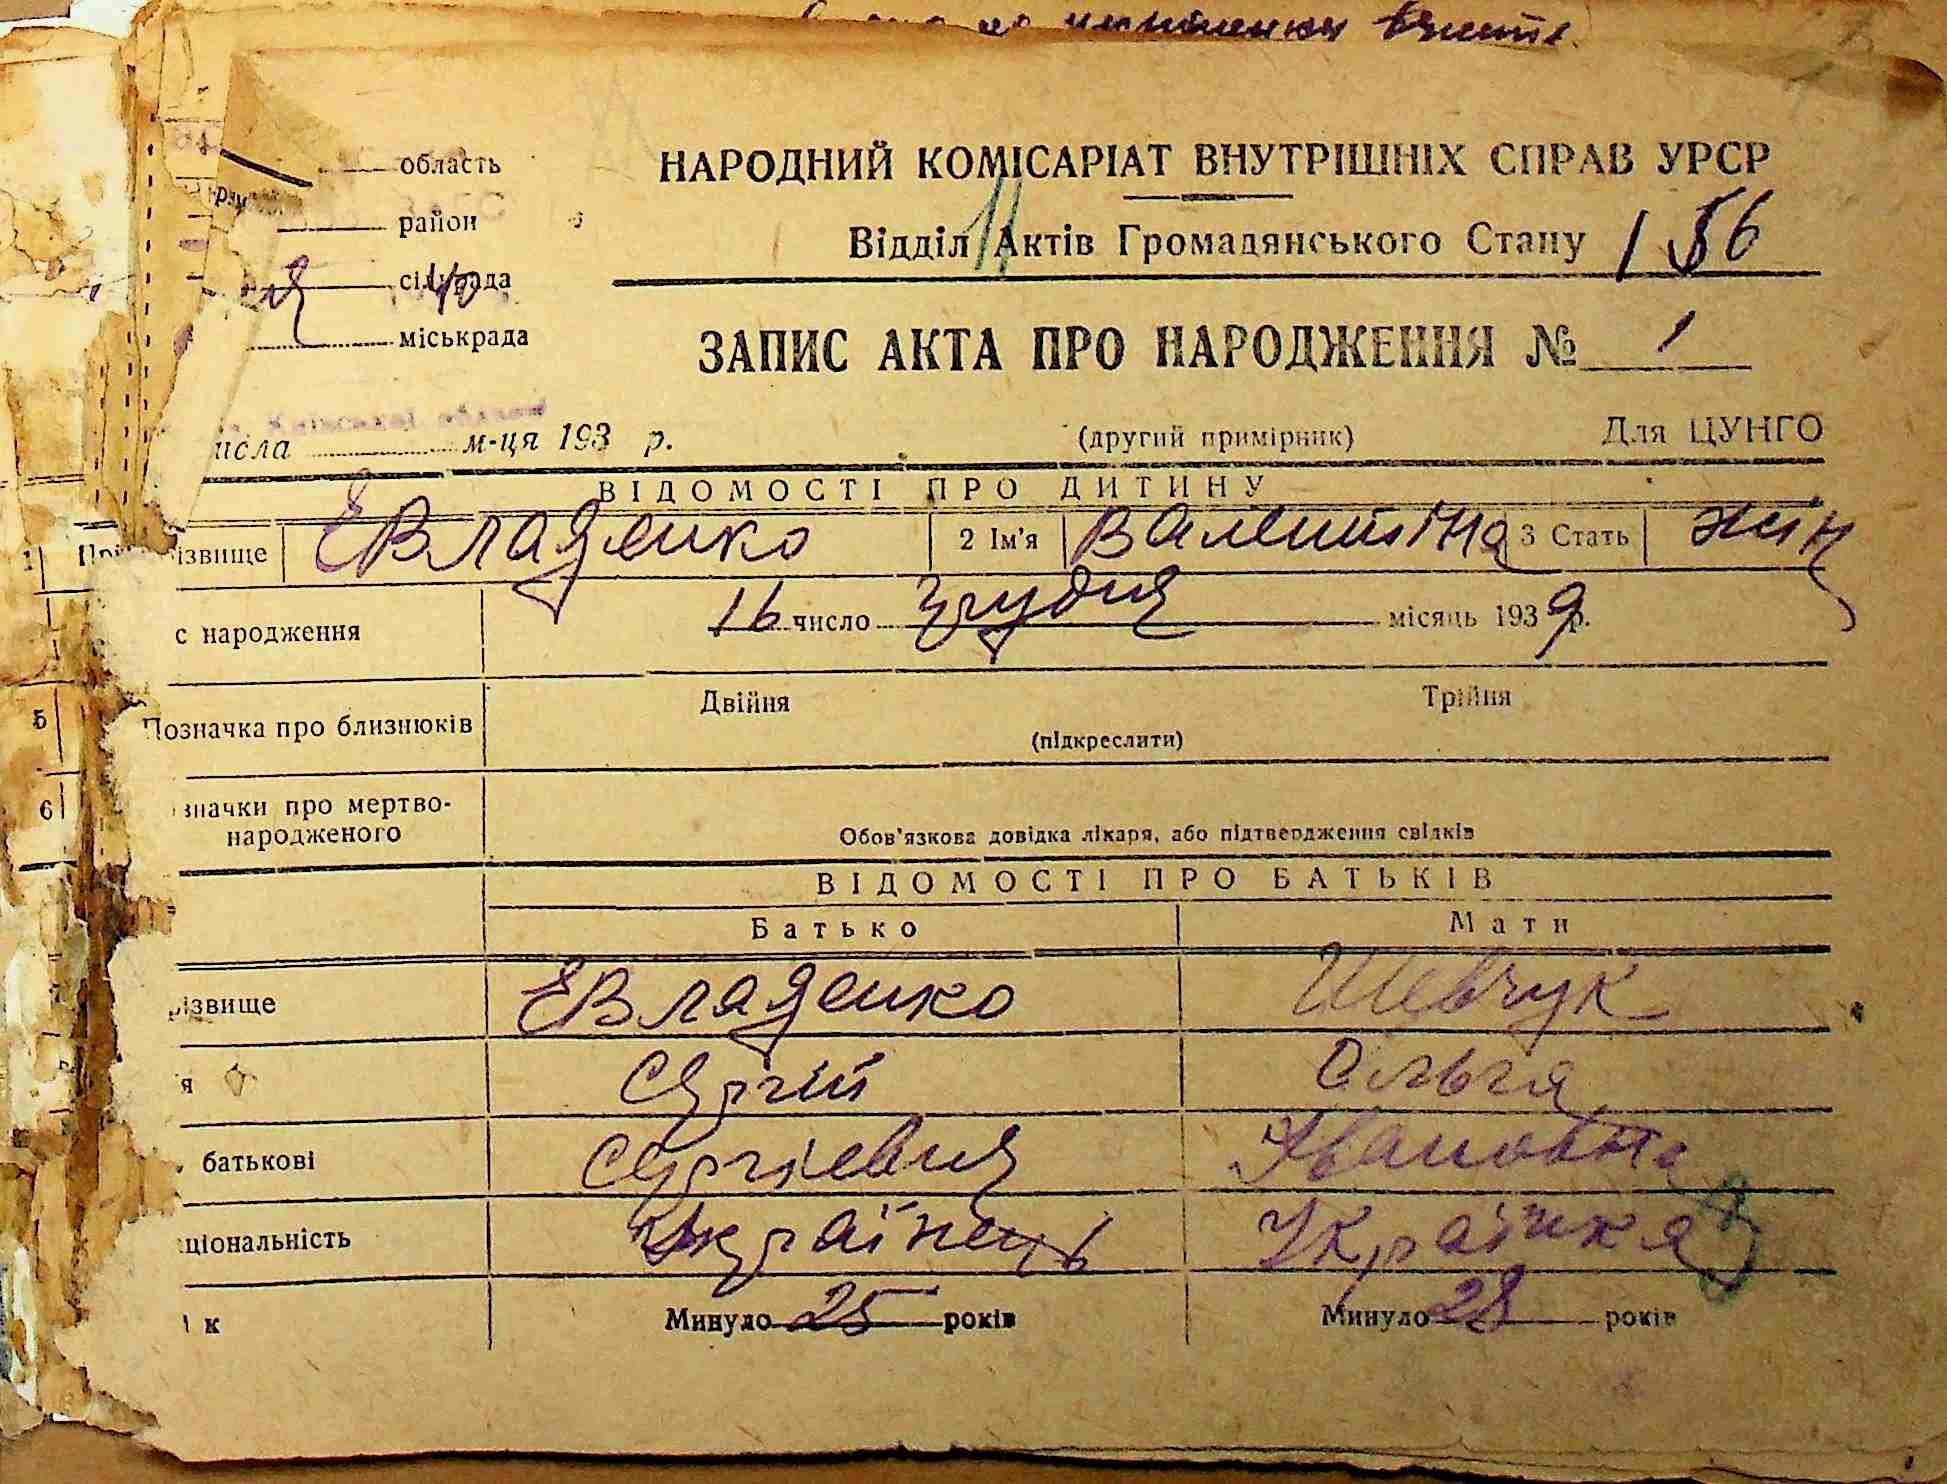 область
район
сільрада
міськрада
НАРОДНИЙ КОМІСАРІАТ ВНУТРІШНІХ СПРАВ УРСР
11
Відділ Актів Громадянського Стану 156
ЗАПИС АКТА ПРО НАРОДЖЕННЯ № 1
исла м-ця 193 р. (другий примірник) Для ЦУНГО
ВІДОМОСТІ ПРО ДИТИНУ
1 Прі ізвище Євладенко 2 Ім'я Валентіна 3 Стать жін
с народження 16 число грудня місяць 1939 р.
5 Позначка про близнюків Двійня Трійня
(підкреслити)
6 значки про мертво-
народженого Обов'язкова довідка лікаря, або підтвердження свідків
ВІДОМОСТІ ПРО БАТЬКІВ
Батько Мати
різвище Євладенко Шевчук
я Сергій Ольга
батькові Сергієвич Івановна
ціональність Українець Українка
к Минуло 25 років Минуло 28 років